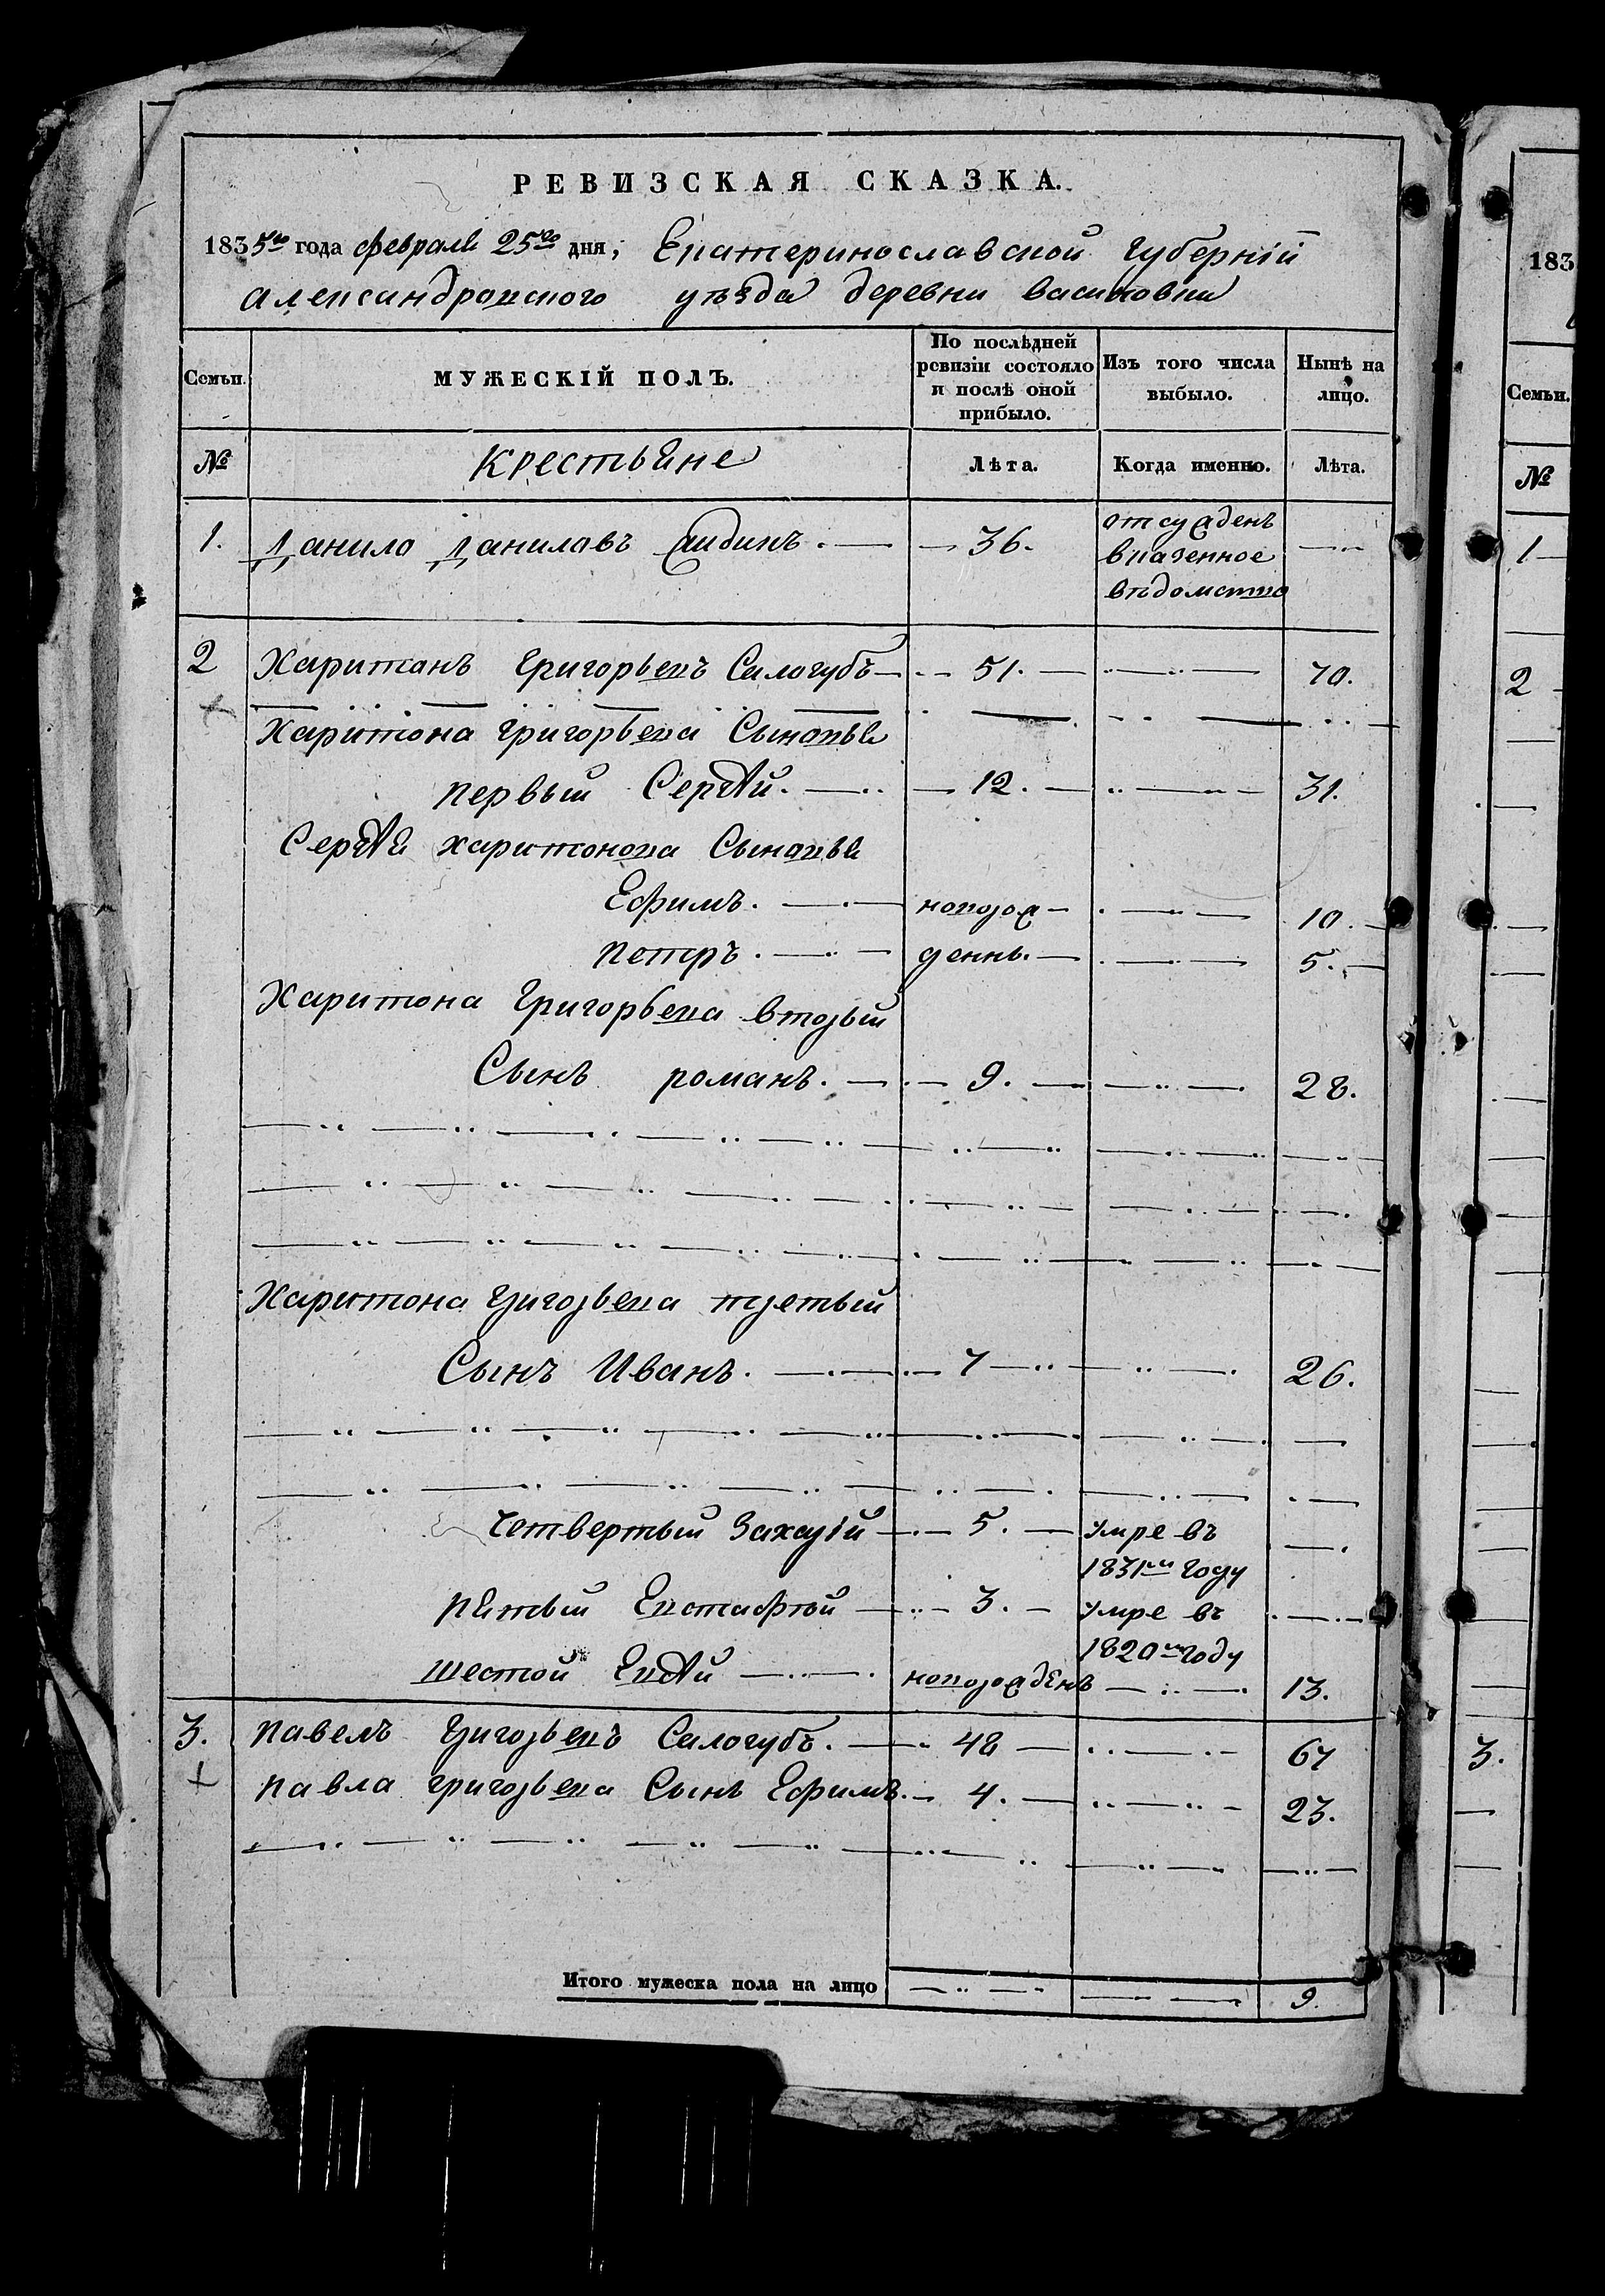 РЕВИЗСКАЯ СКАЗКА.
1835го года февраля 25го дня, Екатеринославской губерніи
александровского уѣзда деревни василковки
Семьи.
МУЖЕСКІЙ ПОЛЪ.
По послѣдней ревизіи состояло и послѣ оной прибыло.
Изъ того числа выбыло.
Нынѣ на лицо.
№ крестьяне Лѣта. Когда именно. Лѣта.
1. Данило Даниловъ 36. отсужденъ
вказенное
вѣдомство
2 Харитонъ Григорьевъ Салогубъ 51. 70.
Харитона Григорьева Сыновья
первый Сергѣй. 12. 31.
Сергѣя харитонова Сыновья
Ефимъ. новорож- 10.
петръ. денны. 5.
Харитона Григорьева вторый
Сынъ романъ. 9. 28.
Харитона Григорьева третьий
Сынъ Иванъ. 7 26.
Четвертый Захарій 5. умре въ
1831м году
пятый Евстафѣй 3. умре въ
1820м году
шестой новорожденъ 13.
3. павелъ Григорьевъ Салогубъ. 48 67
павла григорьева Сынъ Ефимъ. 4. 23.
Итого мужеска пола на лицо 9.
183
Семьи.
№
1
2
3.